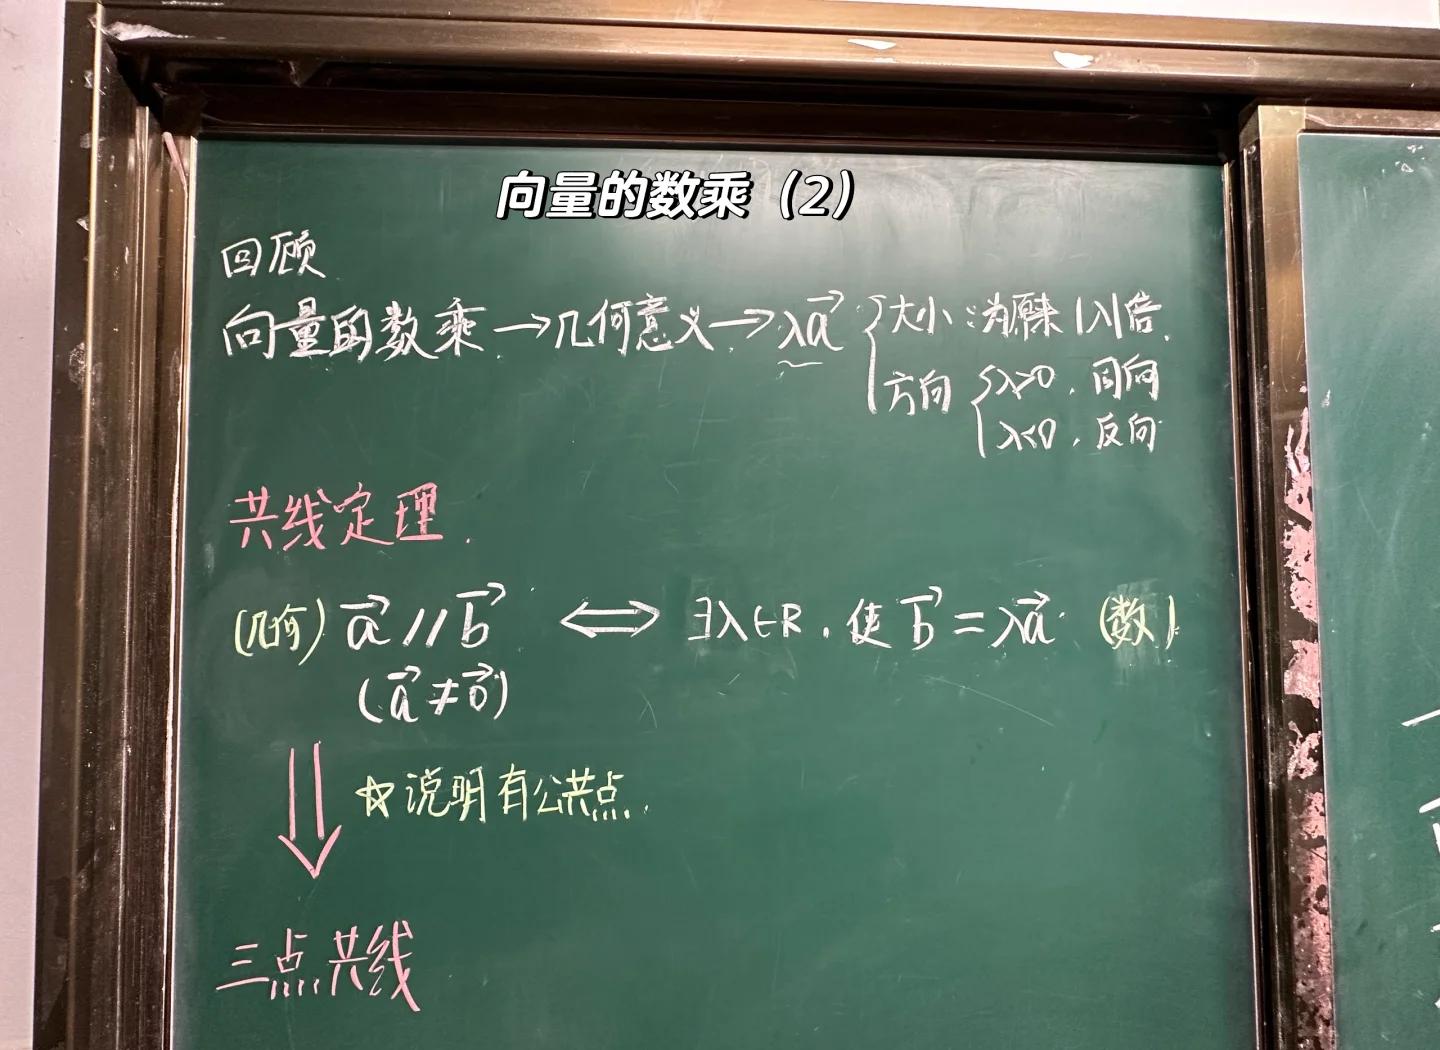 向量的数乘（2）
回顾
向量的数乘→几何意义→λa⃗ { 大小：为原来|λ|倍.
方向 { λ>0，同向
λ<0，反向
共线定理.
(几何) a⃗ // b⃗ ⟺ ∃λ∈R，使 b⃗ = λa⃗ (数)
(a⃗ ≠ 0⃗)
☆说明有公共点.
三点共线